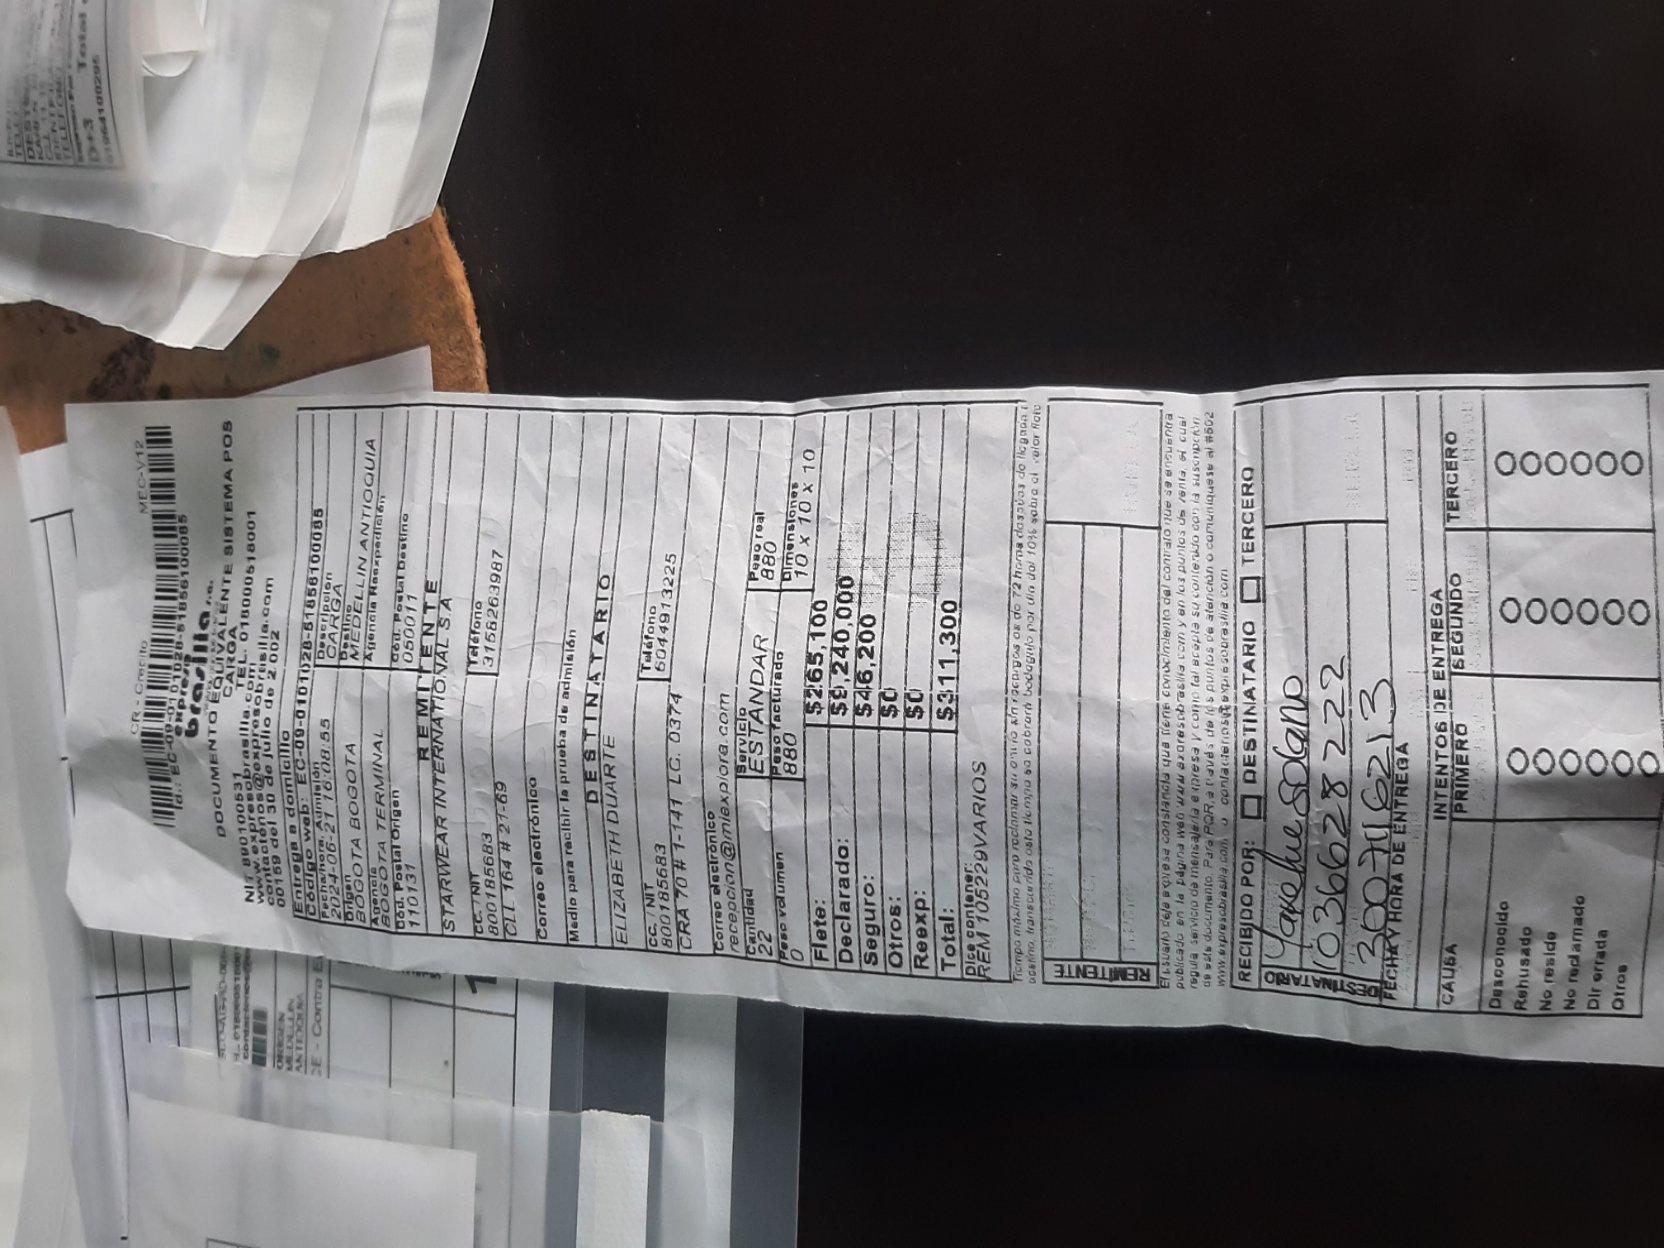 CR - Credito MEC-V12
Id.: EC-09-01-01028-51856100085
expreso
brasilia s.a.
DOCUMENTO EQUIVALENTE SISTEMA POS
CARGA
NIT 890100531 TEL. 018000518001
www.expresobrasilia.com
contactenos@expresobrasilia.com
00159 del 30 de julio de 2.002
Entrega a domicilio
Código web: EC-09-0101028-51856100085
Fecha/hora Admisión Descripción
2024-06-21 16:08:55 CARGA
Origen Destino
BOGOTA BOGOTA MEDELLIN ANTIOQUIA
Agencia Agencia Reexpedición
BOGOTA TERMINAL
Cód. Postal Origen Cód. Postal Destino
110131 050011
REMITENTE
STARWEAR INTERNATIONAL S.A
CC. / NIT Teléfono
800185683 3158263987
CLL 164 # 21-69
Correo electrónico
Medio para recibir la prueba de admisión
DESTINATARIO
ELIZABETH DUARTE
CC. / NIT Teléfono
800185683 6044913225
CRA 70 # 1-141 LC. 0374
Correo electrónico
recepcion@miexplora.com
Cantidad Servicio Peso real
22 ESTANDAR 880
Peso volumen Peso facturado Dimensiones
0 880 10 x 10 x 10
Flete: $265,100
Declarado: $9,240,000
Seguro: $46,200
Otros: $0
Reexp: $0
Total: $311,300
Dice contener:
REM 105229VARIOS
Tiempo máximo para reclamar su envío sin recargos es de 72 horas después de llegada a
destino, transcurrido este tiempo se cobrará bodegaje por día del 10% sobre el valor flete
REMITENTE
El usuario deja expresa constancia que tiene conocimiento del contrato que se encuentra
publicado en la página web www.expresobrasilia.com y en los puntos de venta, el cual
regula servicio de mensajería expresa y como tal acepta su contenido con la suscripción
de este documento. Para PQR, a través de los puntos de atención o comuníquese al #602
www.expresobrasilia.com o contactenos@expresobrasilia.com
RECIBIDO POR: DESTINATARIO TERCERO
DESTINATARIO
1036628222
DESTINATARIO
FECHA Y HORA DE ENTREGA
INTENTOS DE ENTREGA
CAUSA PRIMERO SEGUNDO TERCERO
Desconocido
Rehusado
No reside
No reclamado
Dir errada
Otros
ORIGEN
MEDELLIN
ANTIOQUIA
D+3 Total